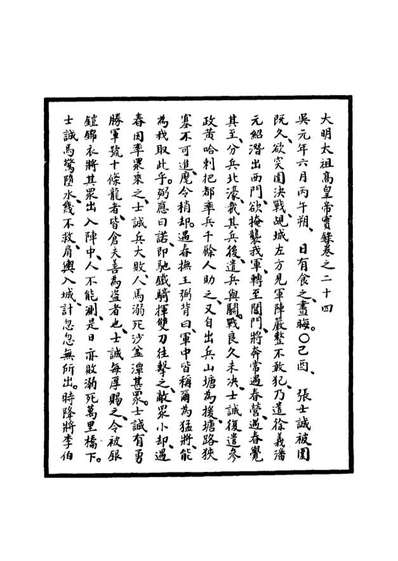 大明太祖高皇帝實錄卷之二十四
吳元年六月丙午朔、日有食之、晝晦。○己酉、張士誠被圍
既久、欲突圍決戰、覘城左方、見軍陣嚴整、不敢犯、乃遣徐義、潘
元紹潛出西門、欲掩襲我軍、轉至閶門、將奔常遇春營、遇春覺
其至、分兵北濠、截其兵後、遣兵與鬭。戰良久未決、士誠復遣參
政黃哈剌把都率兵千餘人助之、又自出兵山塘為援、塘路狹
塞不可進、麾令稍却。遇春撫王弼背曰、軍中皆稱爾為猛將、能
為我取此乎。弼應曰諾、即馳鐵騎、揮雙刀往擊之、敵眾小却、遇
春因率眾乘之、士誠兵大敗、人馬溺死沙盆潭甚眾。士誠有勇
勝軍號十條龍者、皆倉夫善為盜者也、士誠每厚賜之、令被銀
鎧錦衣、將其眾出入陣中、人不能測、是日亦敗、溺死萬里橋下。
士誠馬驚墮水、幾不救、肩輿入城、計忽忽無所出。時降將李伯